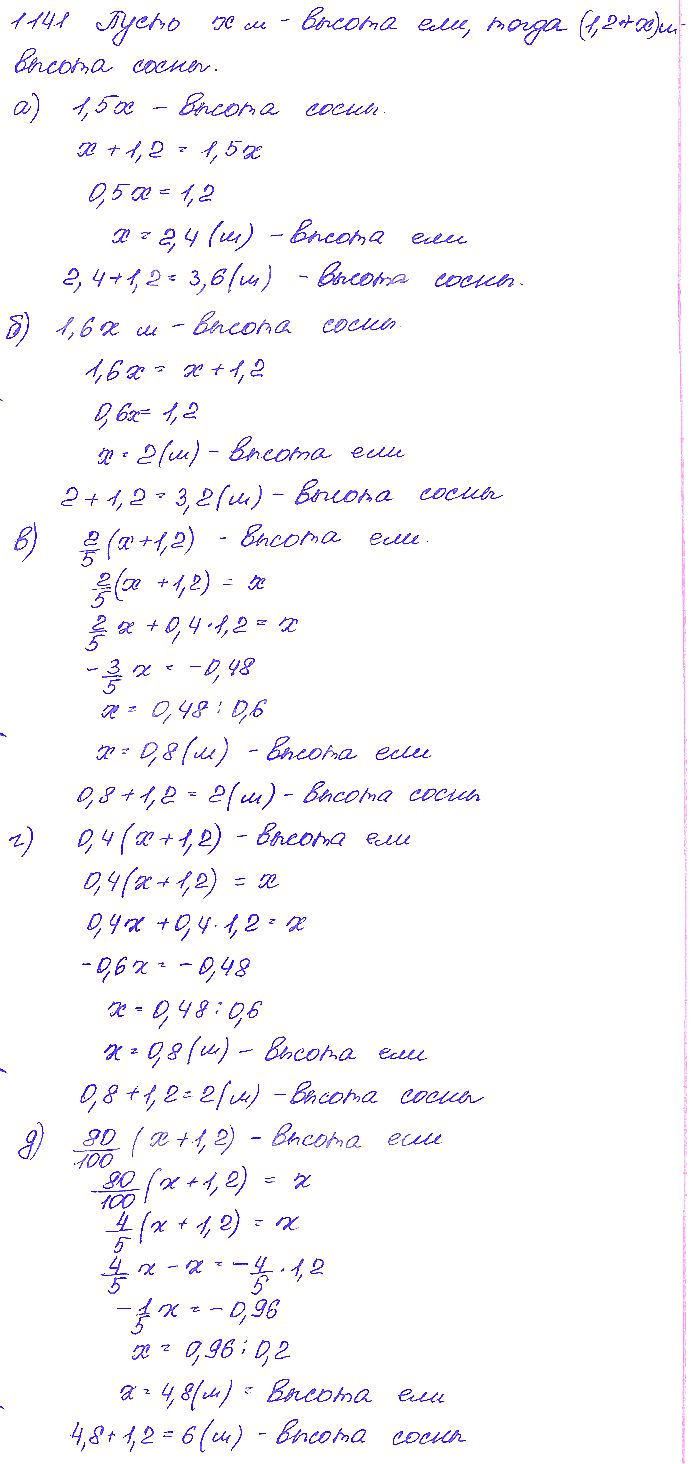 1141 Пусть x м - высота ели, тогда (1,2+x)м-
высота сосны.
а) 1,5x - высота сосны.
x + 1,2 = 1,5x
0,5x = 1,2
x = 2,4 (м) - высота ели
2,4 + 1,2 = 3,6 (м) - высота сосны.
б) 1,6x м - высота сосны
1,6x = x + 1,2
0,6x = 1,2
x = 2 (м) - высота ели
2 + 1,2 = 3,2 (м) - высота сосны
в) 2/5 (x + 1,2) - высота ели.
2/5 (x + 1,2) = x
2/5 x + 0,4 · 1,2 = x
- 3/5 x = - 0,48
x = 0,48 : 0,6
x = 0,8 (м) - высота ели
0,8 + 1,2 = 2 (м) - высота сосны
г) 0,4 (x + 1,2) - высота ели
0,4 (x + 1,2) = x
0,4x + 0,4 · 1,2 = x
-0,6x = - 0,48
x = 0,48 : 0,6
x = 0,8 (м) - высота ели
0,8 + 1,2 = 2 (м) - высота сосны
д) 80/100 (x + 1,2) - высота ели
80/100 (x + 1,2) = x
4/5 (x + 1,2) = x
4/5 x - x = - 4/5 · 1,2
- 1/5 x = - 0,96
x = 0,96 : 0,2
x = 4,8 (м) = высота ели
4,8 + 1,2 = 6 (м) - высота сосны